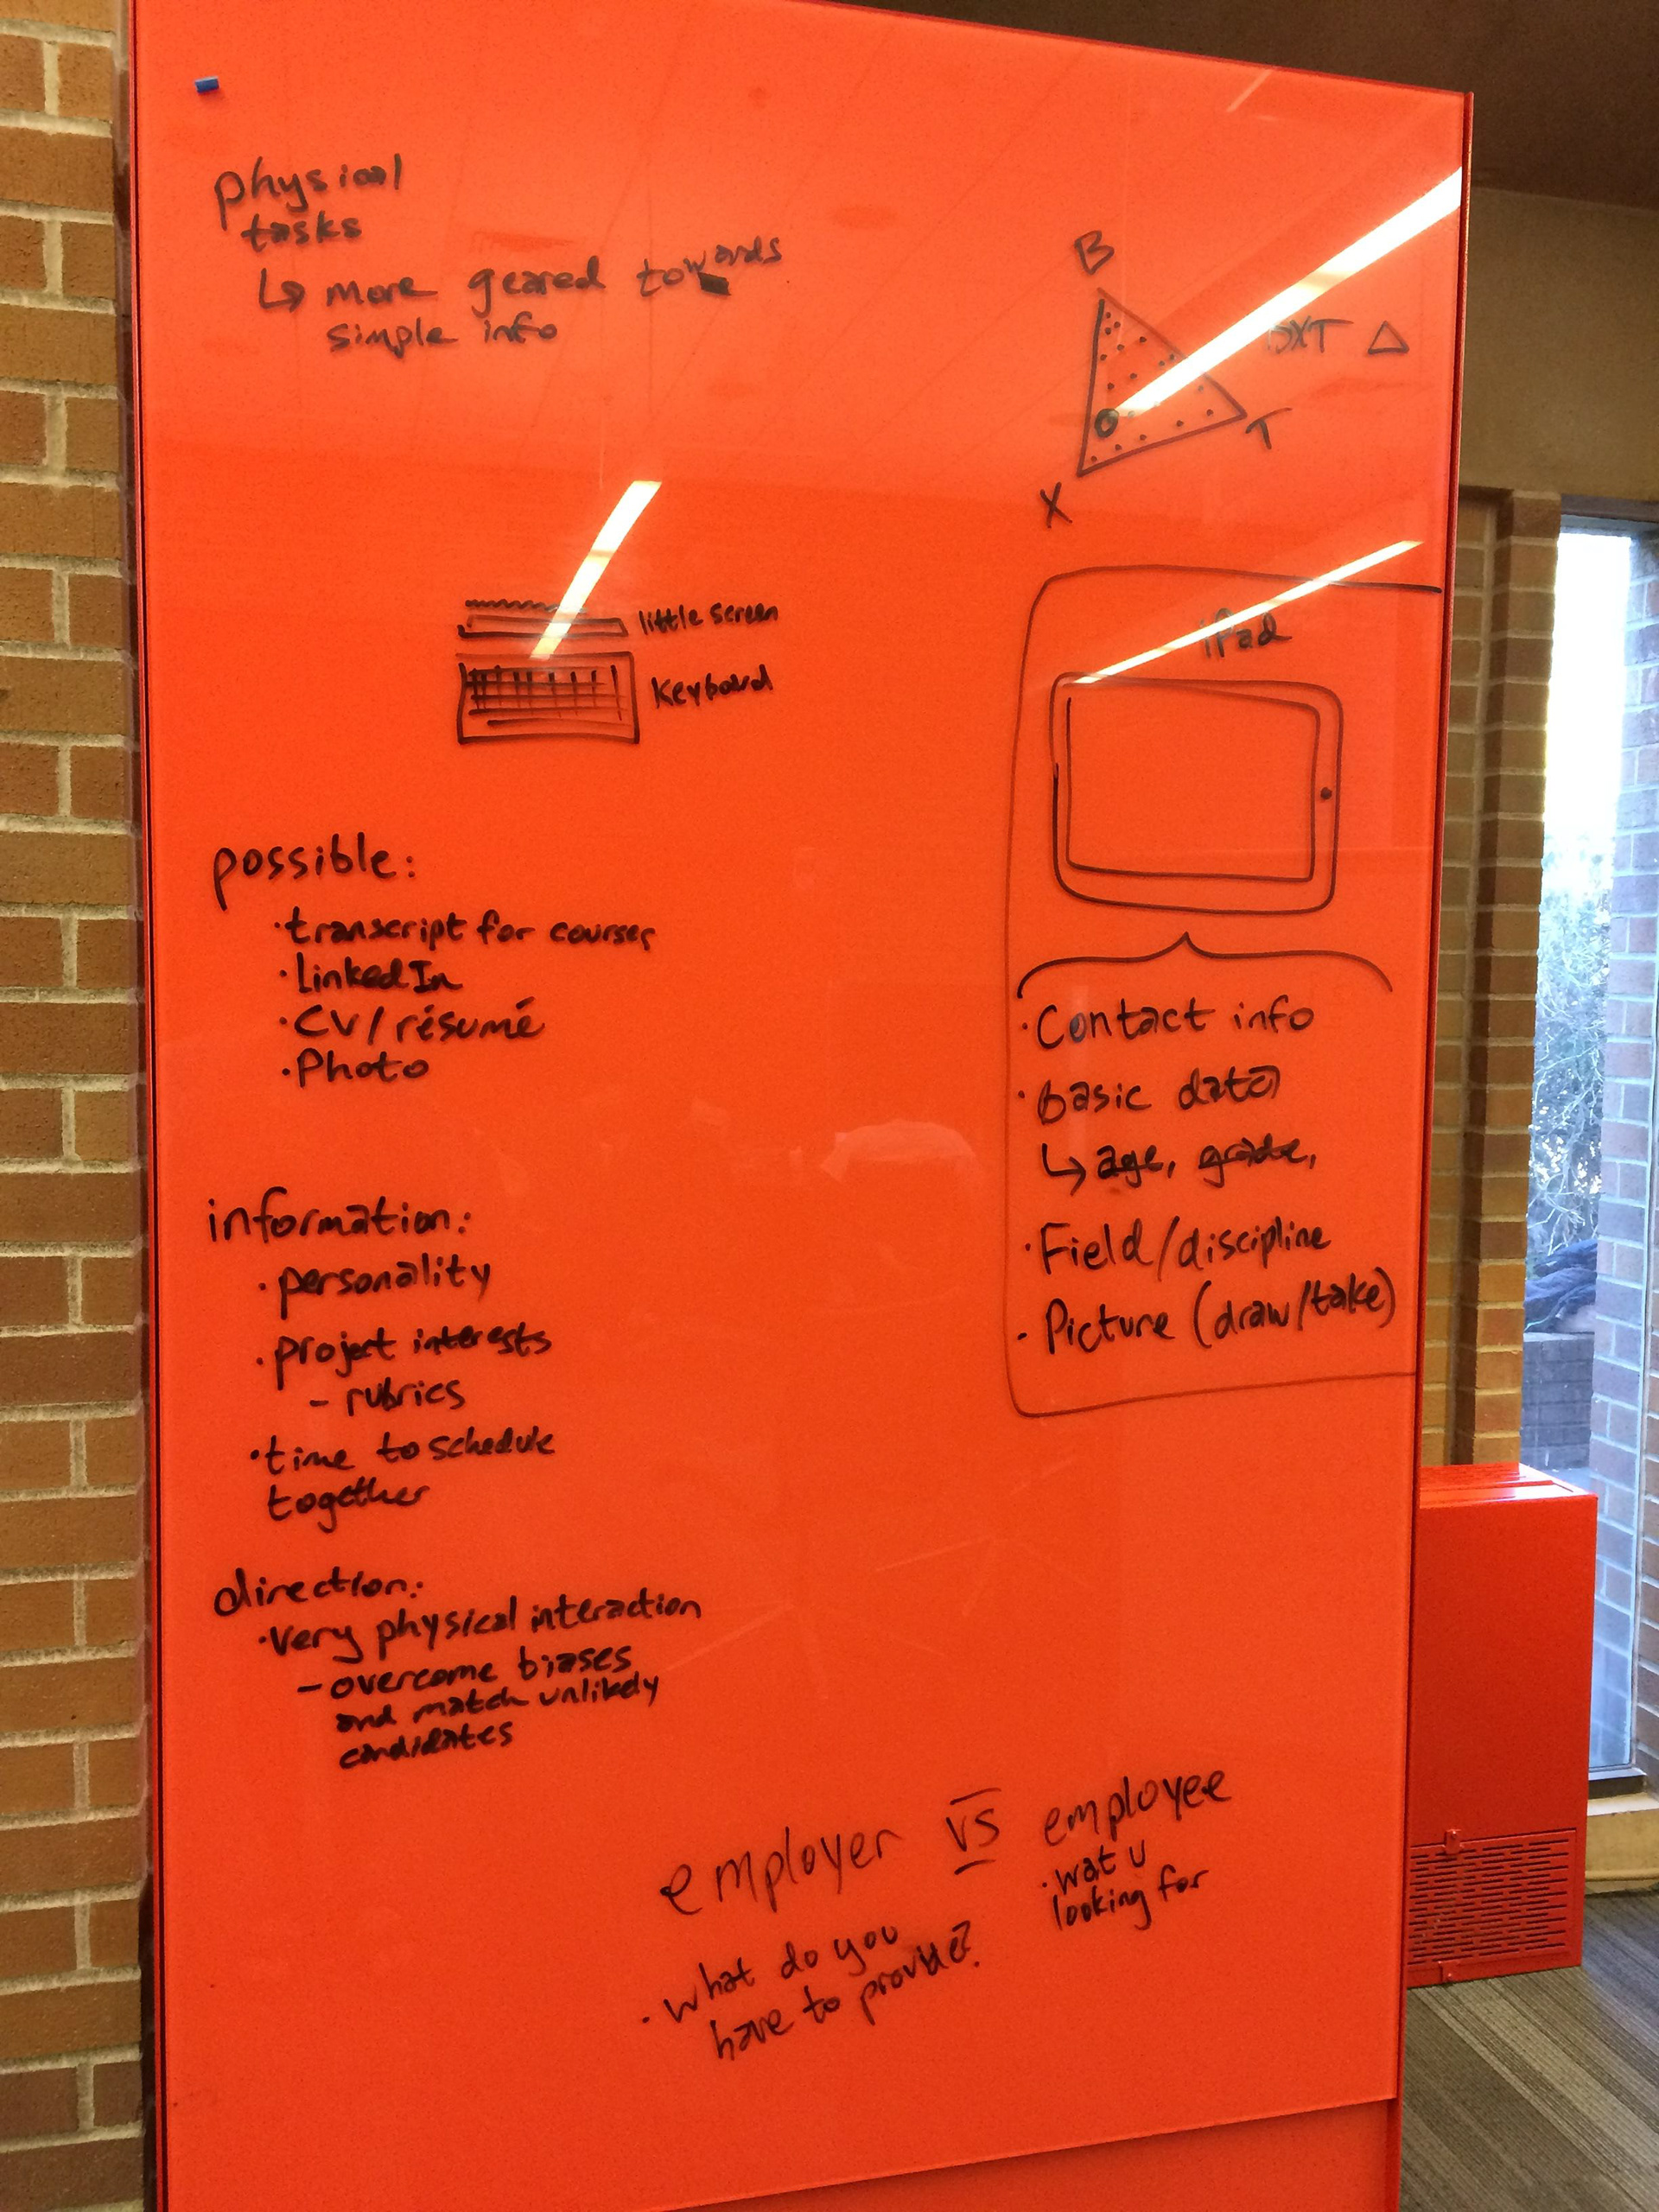 physical
tasks
↳ more geared towards
simple info
B
BXT △
T
X
little screen
Keyboard
possible:
· transcript for courses
· LinkedIn
· CV/résumé
· Photo
information:
· personality
· project interests
– rubrics
· time to schedule
together
direction:
· very physical interaction
– overcome biases
and match unlikely
candidates
iPad
· Contact info
· basic data
↳ age, grade,
· Field/discipline
- Picture (draw/take)
employer vs employee
· what do you
have to provide?
· wat u
looking for